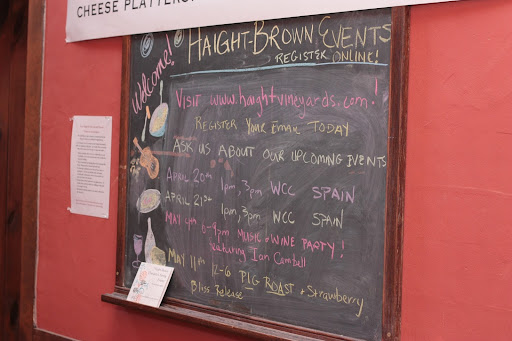 CHEESE PLATTERS
Welcome!
HAIGHT-BROWN EVENTS
REGISTER ONLINE!
VISIT www.haightvineyards.com!
REGISTER YOUR EMAIL TODAY
ASK US ABOUT OUR UPCOMING EVENTS
APRIL 20th 1pm, 3pm WCC SPAIN
APRIL 21st 1pm, 3pm WCC SPAIN
MAY 4th 6-9pm MUSIC & WINE PARTY!
featuring Ian Campbell
MAY 11th 12-6 PIG ROAST + Strawberry
Bliss Release